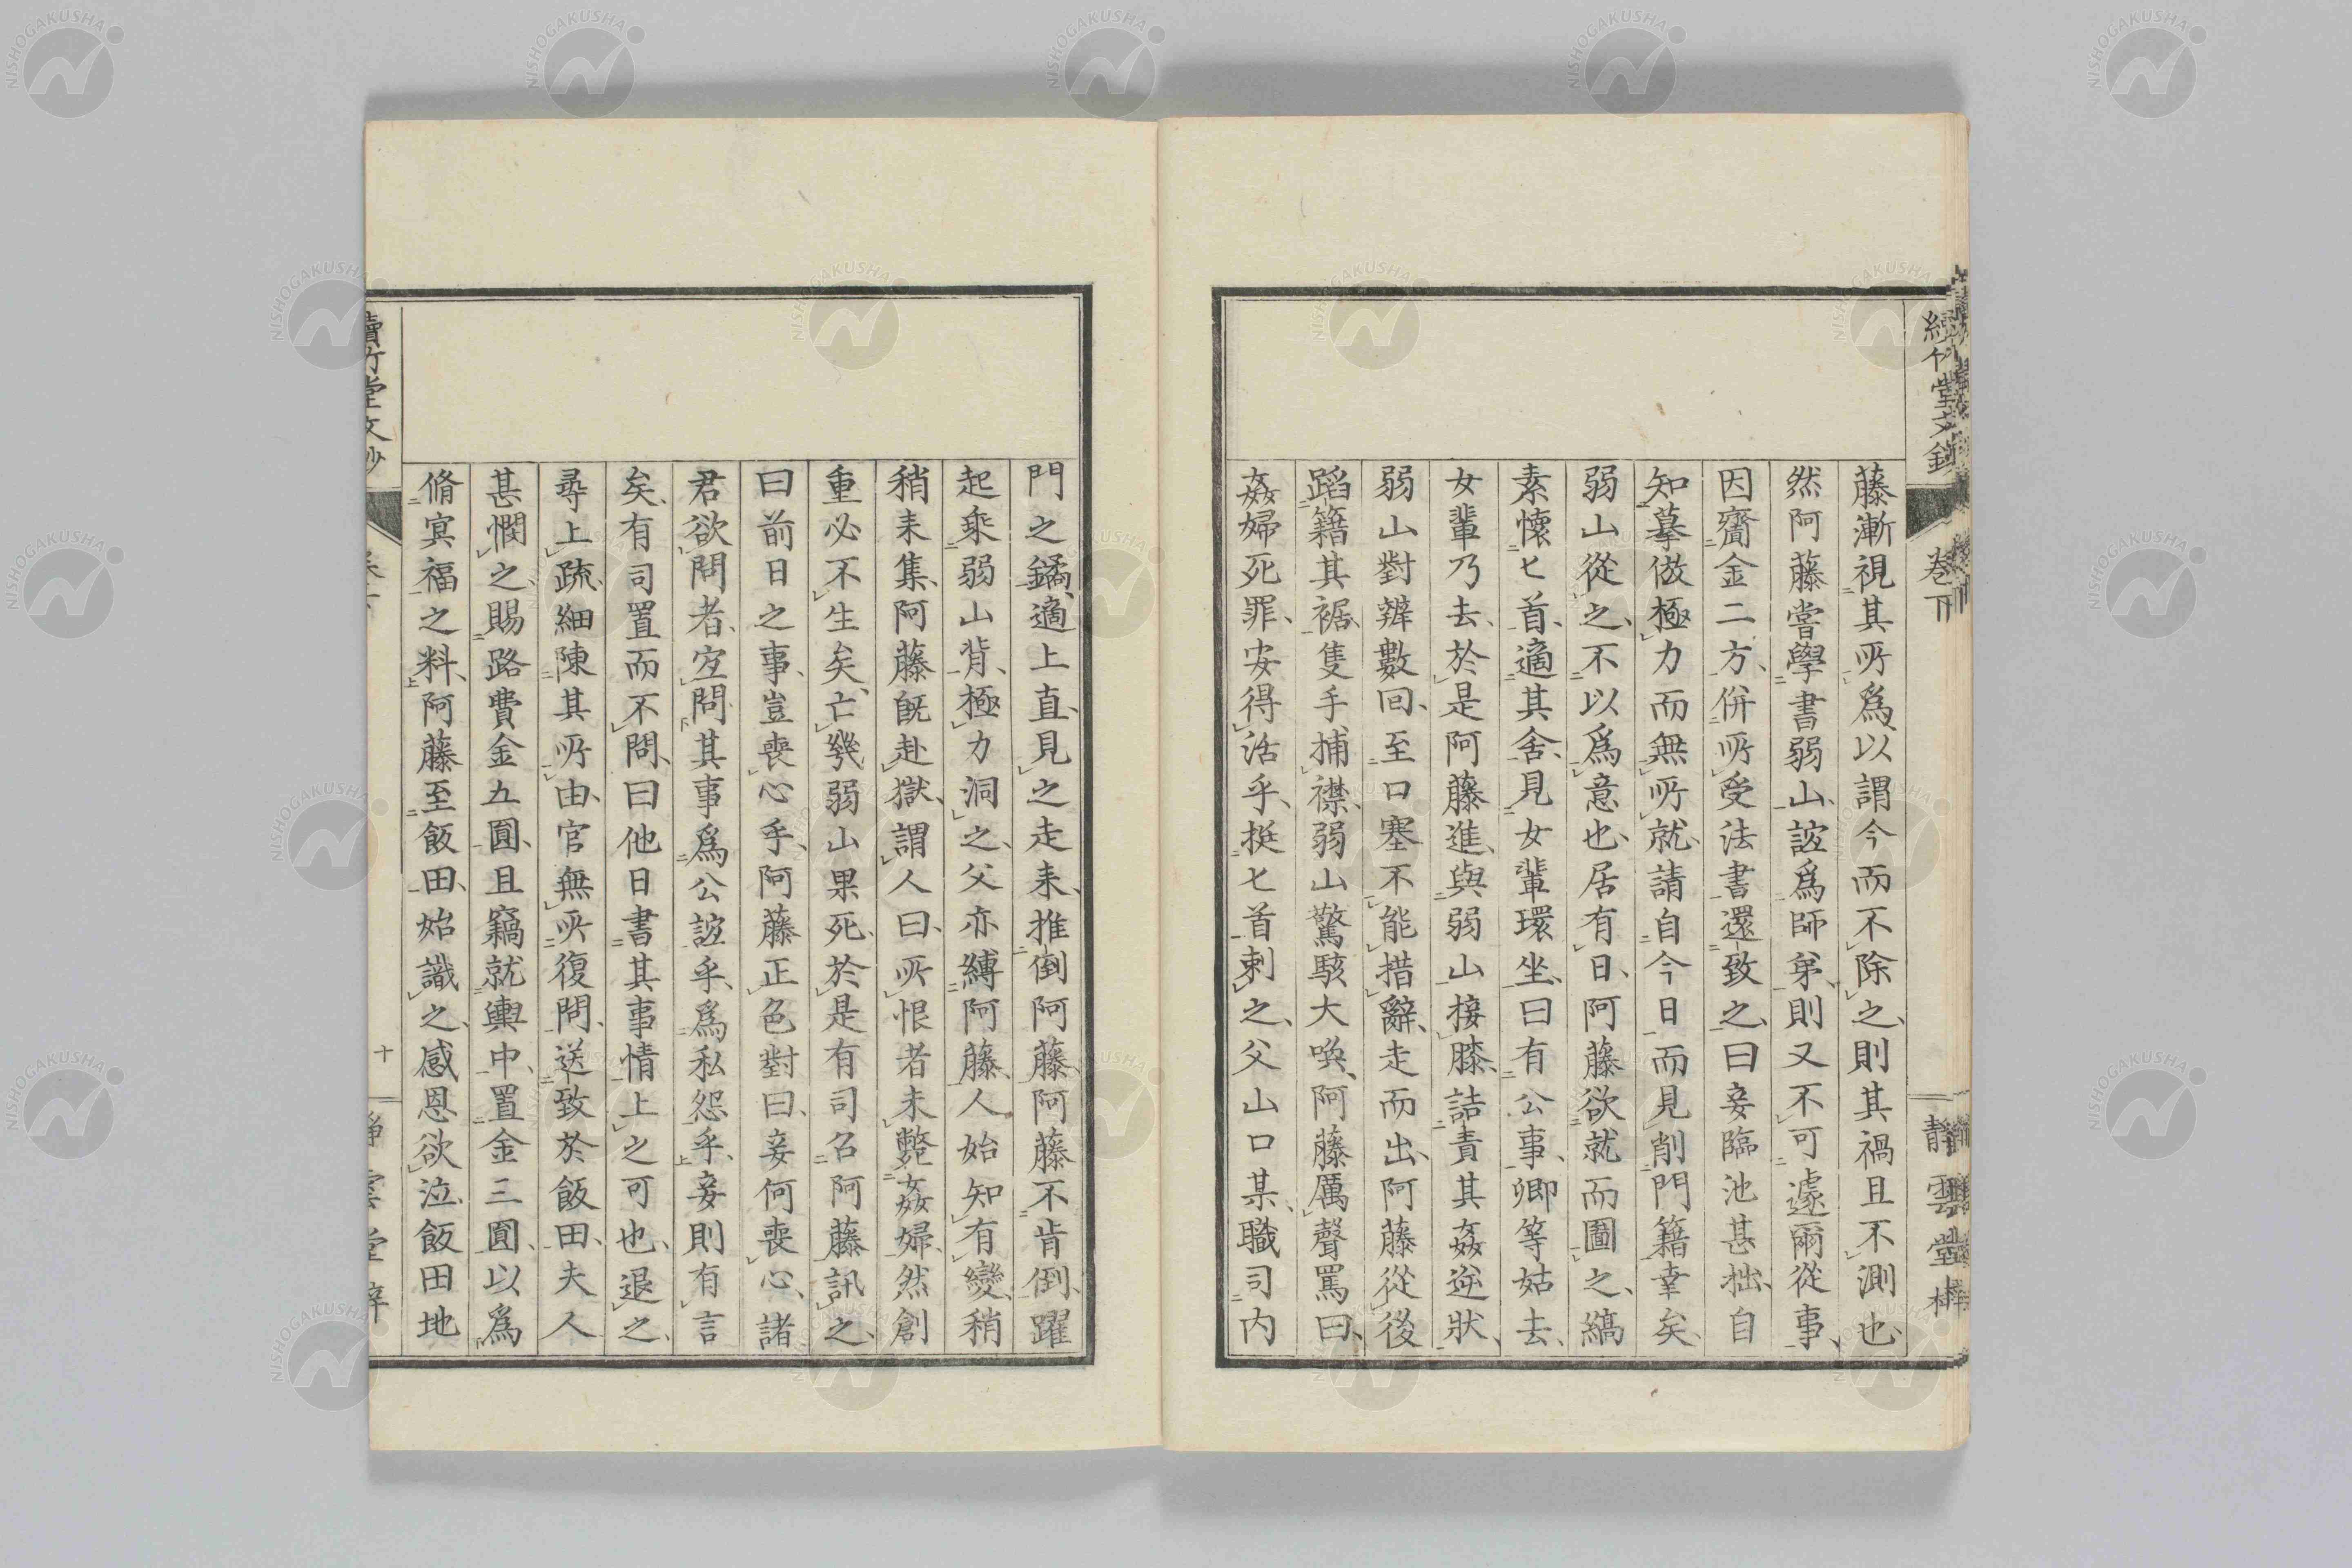 藤漸視其所爲以謂今而不除之則其禍且不測也
然阿藤嘗學書弱山誼爲師弟則又不可遽爾從事
因齎金二方併所受法書還致之曰妾臨池甚拙自
知摹倣極力而無所就請自今日而見削門籍幸矣
弱山從之不以爲意也居有日阿藤欲就而圖之縞
素懷匕首適其舍見女輩環坐曰有公事卿等姑去
女輩乃去於是阿藤進與弱山接膝詰責其姦逆狀
弱山對辨數回至口塞不能措辭走而出阿藤從後
蹈籍其裾隻手捕襟弱山驚駭大喚阿藤厲聲罵曰
姦婦死罪安得活乎挺匕首刺之父山口某職司内
門之鐍適上直見之走来推倒阿藤阿藤不肯倒躍
起乘弱山背極力洞之父亦縛阿藤人始知有變稍
稍来集阿藤既赴獄謂人曰所恨者未斃姦婦然創
重必不生矣亡幾弱山果死於是有司召阿藤訊之
曰前日之事豈喪心乎阿藤正色對曰妾何喪心諸
君欲問者宜問其事爲公誼乎爲私怨乎妾則有言
矣有司置而不問曰他日書其事情上之可也退之
尋上疏細陳其所由官無所復問送致於飯田夫人
甚憫之賜路費金五圓且竊就輿中置金三圓以爲
脩冥福之料阿藤至飯田始識之感恩欲泣飯田地
卷下
靜雲堂梓
讀竹堂文鈔
十
NISHOGAKUSHA